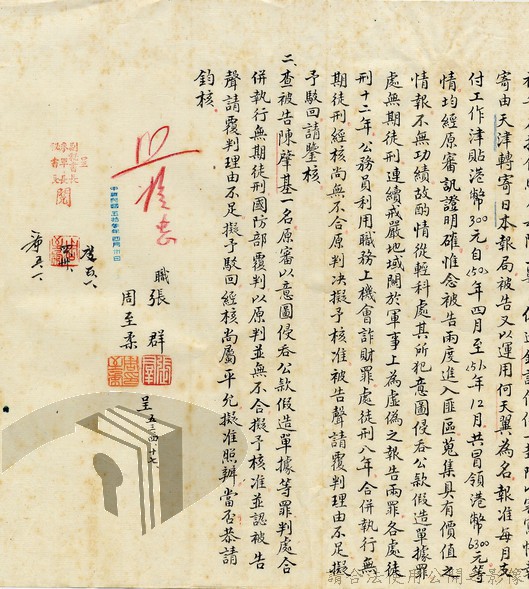 寄由天津轉寄日本報局被告又以運用何天翼為名報准每月支
付工作津貼港幣300元自50年四月至51年12月共冒領港幣6300元等
情均經原審訊證明確惟念被告兩度進入匪區蒐集具有價值之
情報不無功績故酌情從輕科處其所犯意圖侵吞公款假造單據罪
處無期徒刑連續戒嚴地域關於軍事上為虛偽之報告兩罪各處徒
刑十二年公務員利用職務上機會詐財罪處徒刑八年合併執行無
期徒刑經核尚無不合原判決擬予核准被告聲請覆判理由不足擬
予駁回請鑒核
二、查被告陳肇基一名原審以意圖侵吞公款假造單據等罪判處合
併執行無期徒刑國防部覆判以原判並無不合擬予核准並認被告
聲請覆判理由不足擬予駁回經核尚屬平允擬准照辦當否恭請
鈞核
職張群
周至柔
呈 五三、四、十七
呈
副秘書長
參軍長
秘書長
閱
請合法使用公開之影像